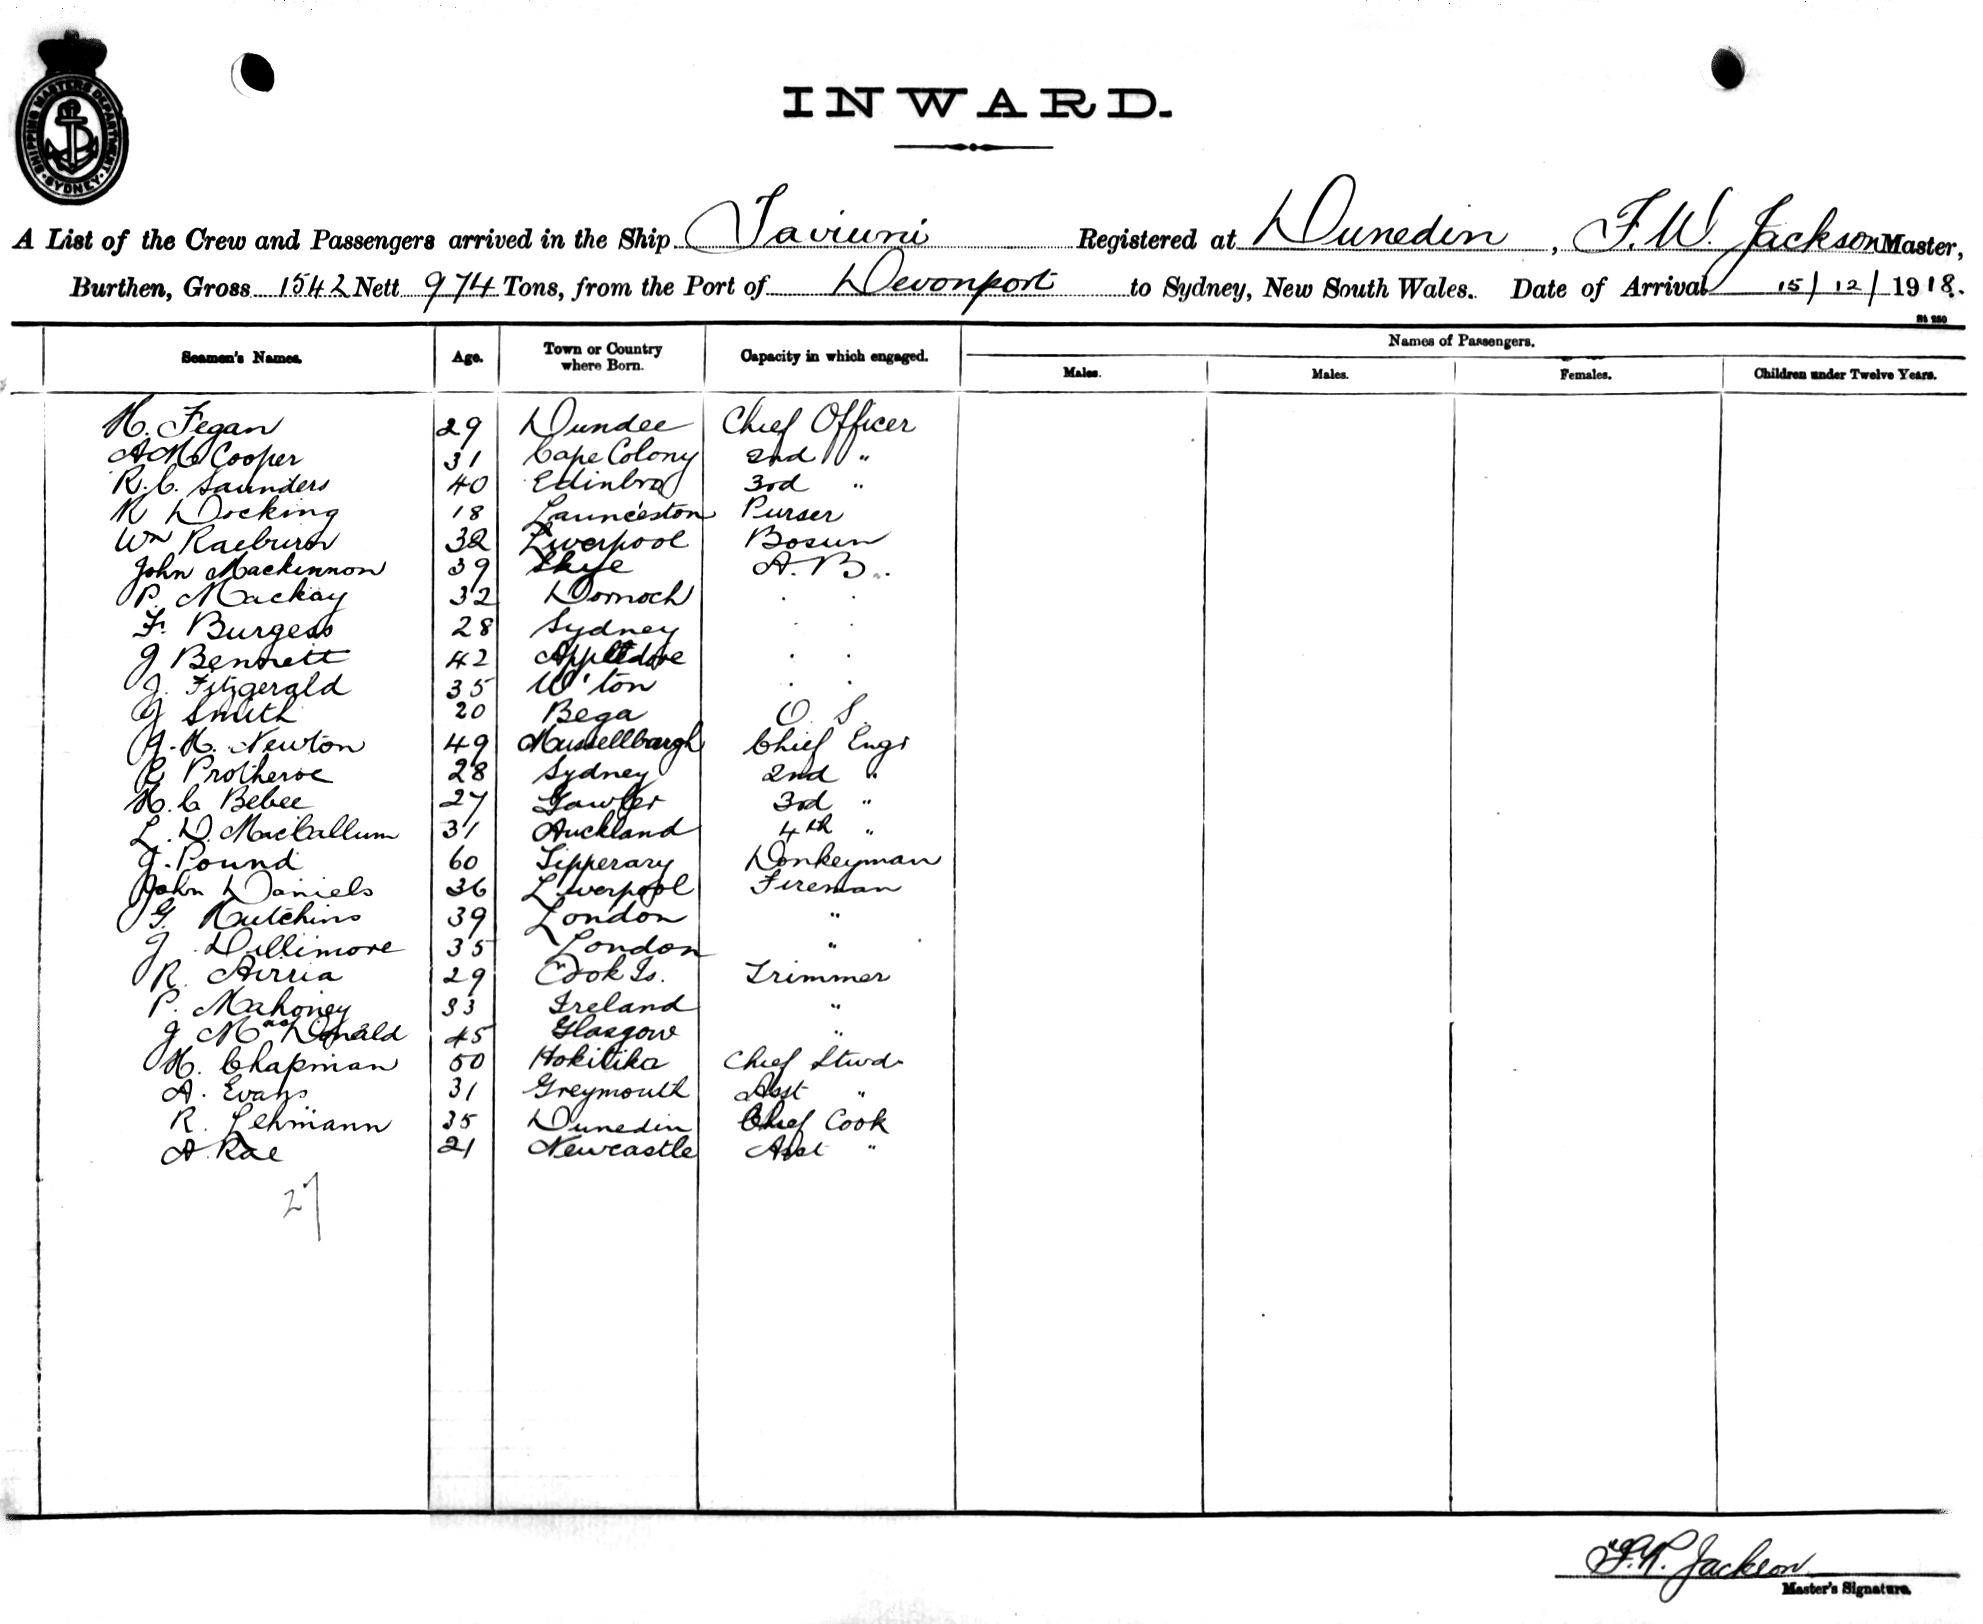 SHIPPING MASTERS DEPARTMENT
SYDNEY
INWARD.
A List of the Crew and Passengers arrived in the Ship Taviuni Registered at Dunedin, F. W. Jackson Master,
Burthen, Gross 1542 Nett 974 Tons, from the Port of Devonport to Sydney, New South Wales. Date of Arrival 15/12/1918.
St 250
Seamen's Names. Age. Town or Country where Born. Capacity in which engaged. Names of Passengers.
Males. Males. Females. Children under Twelve Years.
H. Fegan 29 Dundee Chief Officer
A Mc Cooper 31 Cape Colony 2nd "
R. C. Saunders 40 Edinbro 3rd "
R Docking 18 Launceston Purser
Wm Raeburn 32 Liverpool Bosun
John Mackinnon 39 Skye A. B.
P. Mackay 32 Dornoch . .
F. Burgess 28 Sydney . .
J Bennett 42 Appledore . .
J. Fitzgerald 35 W'ton . .
J Smith 20 Bega O. S.
J. H. Newton 49 Mussellburgh Chief Engr
E Protheroe 28 Sydney 2nd "
H. C Bebee 27 Gawler 3rd "
L. D. MacCallum 31 Auckland 4th "
J. Pound 60 Tipperary Donkeyman
John Daniels 36 Liverpool Fireman
G. Hutchins 39 London "
J. Dillimore 35 London "
R. Airria 29 Cook Is. Trimmer
P. Mahoney 33 Ireland "
J MacDonald 45 Glasgow "
H. Chapman 50 Hokitika Chief Stwd
A. Evans 31 Greymouth Asst "
R. Lehmann 35 Dunedin Chief Cook
A. Rae 21 Newcastle Asst "
27
F. W. Jackson
Master's Signature.